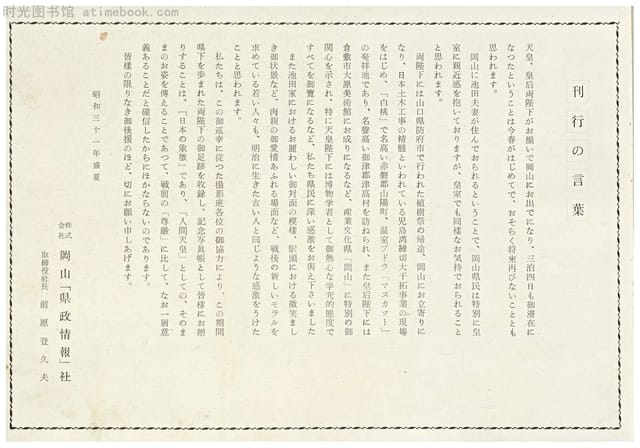 时光图书馆 - atimebook.com
刊行の言葉
天皇、皇后両陛下がお揃いで岡山にお出でになり、三泊四日も御滞在に
なつたということは今春がはじめてで、おそらく将来再びないことゝも
思われます。
岡山に池田夫妻が住んでおられるということで、岡山県民は特別に皇
室に親近感を抱いておりますが、皇室でも同様なお気持でおられること
と思われます。
両陛下には山口県防府市で行われた植樹祭の帰途、岡山にお立寄りに
なり、日本土木工事の精髄といわれている児島湾締切大干拓事業の現場
をはじめ、「白桃」で名高い赤磐郡山陽町、温室ブドウ「マスカツト」
の発祥地であり、名聲高い御津郡津高村を訪ねられ、また皇后陛下には
倉敷市大原美術館にお成りになるなど、産業文化県「岡山」に特別の御
関心を示され、特に天皇陛下には博物学者として御熱心な学究的態度で
すべてを御覽になるなど、私たち県民に深い感激をお與え下さいました
また池田家におけるお麗わしい御対面の模様、駅頭における微笑まし
き御状景など、肉親の御愛情あふれる場面など、戦後の新しいモラルを
求めている若い人々も、明治に生きた古い人と同じような感激をうけた
ことと思われます。
私たちは、この御巡幸に従つた撮影班各位の御協力により、この期間
県下を歩まれた両陛下の御足跡を収録し、記念写眞帳として皆様にお贈
りすることは、「日本の象徴」であり、「人間天皇」としての、そのま
まのお姿を傳えることであつて、戦前の「尊厳」に比して、なお一層意
義あることだと確信したからにほかならないのであります。
皆様の限りなき御後援のほど、切にお願い申しあげます。
昭和三十一年盛夏
株式会社 岡山「県政情報」社
取締役社長 前原登久夫